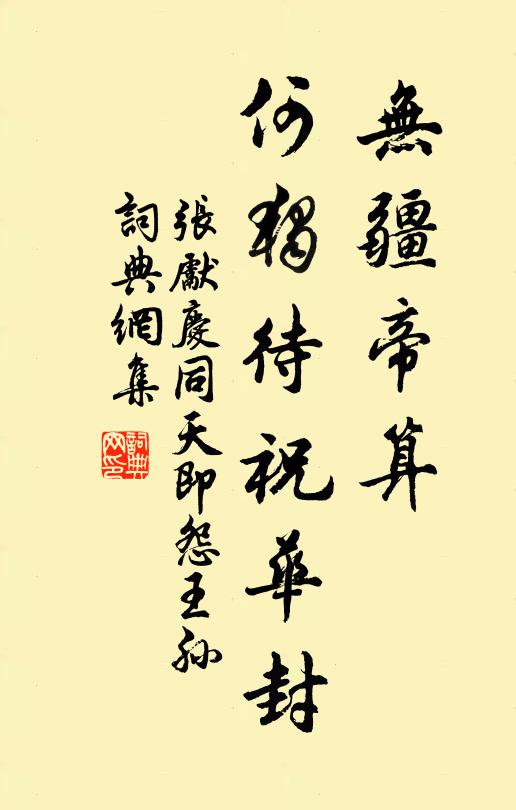 無疆帝算
何獨待祝華封
張獻慶同天即怨王孫
詞典網集
詞典网印